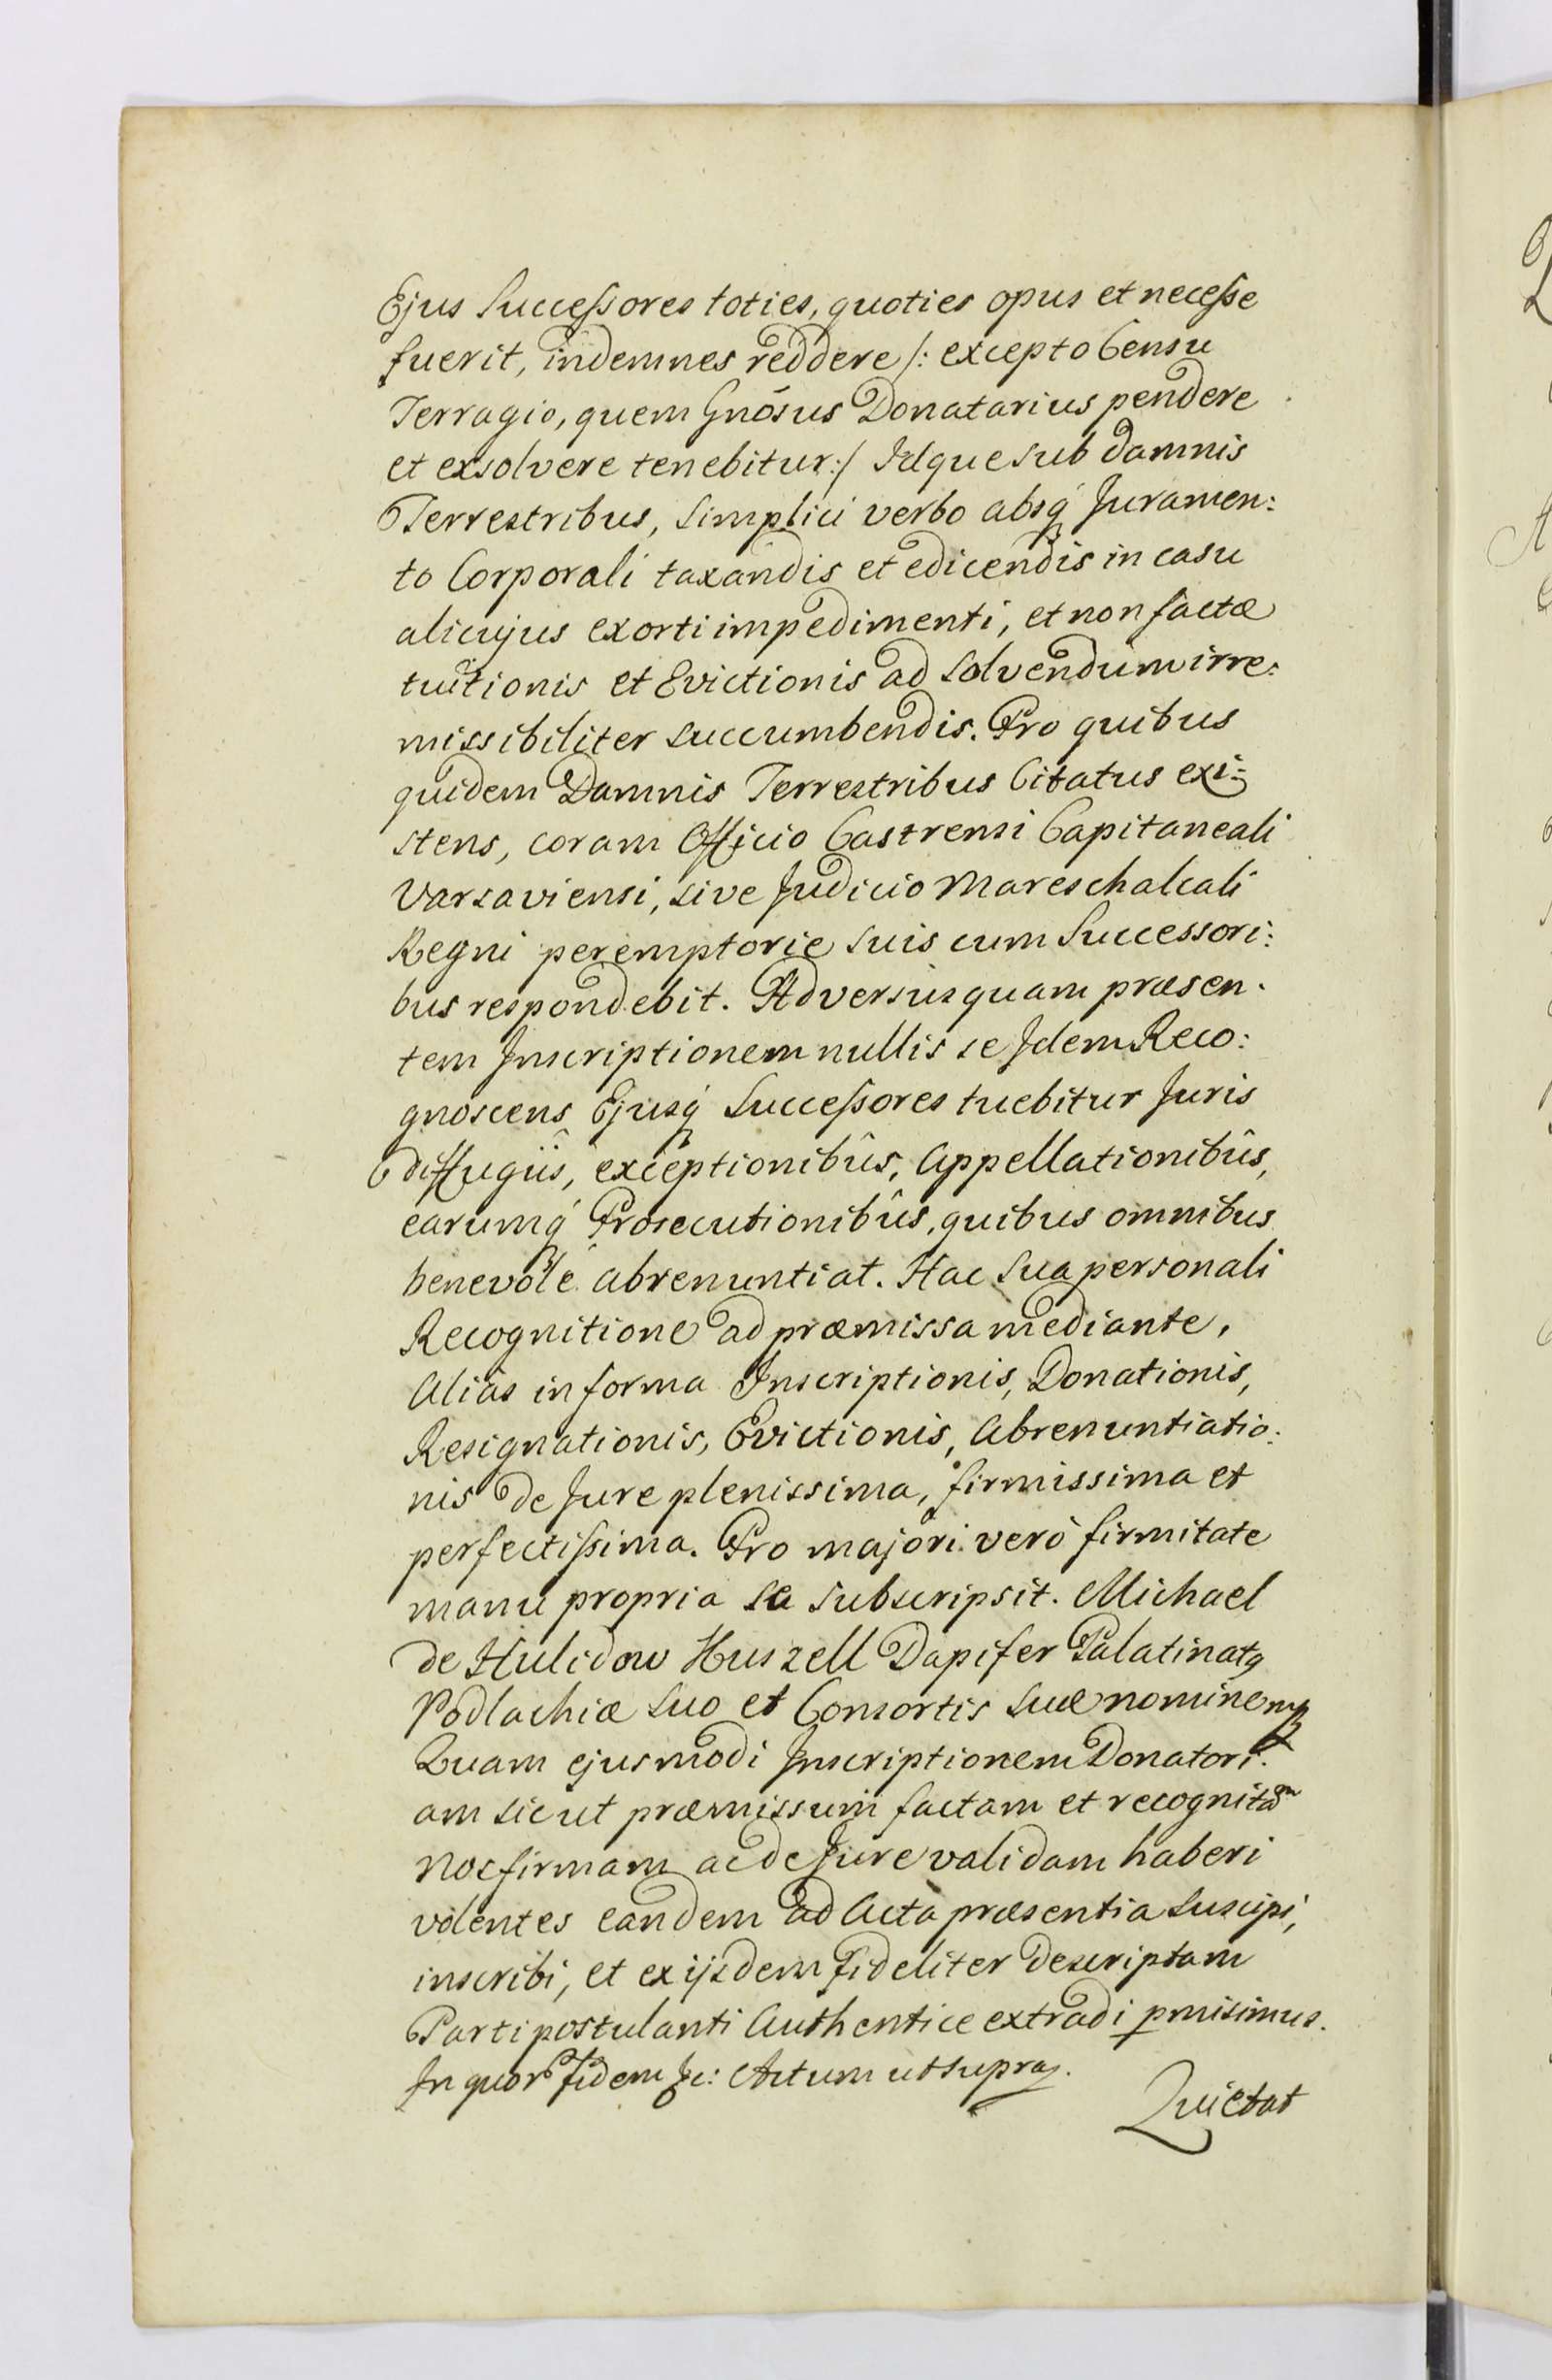 Ejus Successores toties, quoties opus et necesse
fuerit, indemnes reddere /: excepto Censu
Terragio, quem Gnõsus Donatarius pendere
et exsolvere tenebitur :/ Idque sub damnis
Terrestribus, simplici verbo absq́ Juramen:
to Corporali taxandis et edicendis in casu
alicujus exorti impedimenti, et non factæ
tuitionis et Evictionis ad solvendum irre:
missibiliter succumbendis. Pro quibus
quidem Damnis Terrestribus Citatus exi:
stens, coram Officio Castrensi Capitaneali
Varsaviensi, sive Judicio Mareschalcali
Regni peremptorie suis cum Successori:
bus respondebit. Adversus quam præsen:
tem Inscriptionem nullis se Idem Reco:
gnoscens Ejusq́ Successores tuebitur Juris
diffugiîs, exceptionibûs, Appellationibûs,
earumq́ Prosecutionibûs, quibus omnibus
benevolè abrenuntiat. Hac sua personali
Recognitione ad præmissa mediante,
Aliàs in forma Inscriptionis, Donationis,
Resignationis, Evictionis, Abrenuntiatio:
nis de Jure plenissima, firmissima et
perfectissima. Pro majori verò firmitate
manu propria se subscripsit. Michael
de Hulidow Huszell Dapifer Palatinatq
Podlachiæ suo et Consortis suæ nomine mp
Quam ejusmodi Inscriptionem Donatori:
am sicut præmissum factam et recognitam
Nos firmam ac de Jure validam haberi
volentes eandem ad Acta præsentia suscipi,
inscribi, et ex ijsdem fideliter descriptam
Parti postulanti Authentice extradi pmisimus.
In quor fidem &c: Actum ut supra.
Quietat